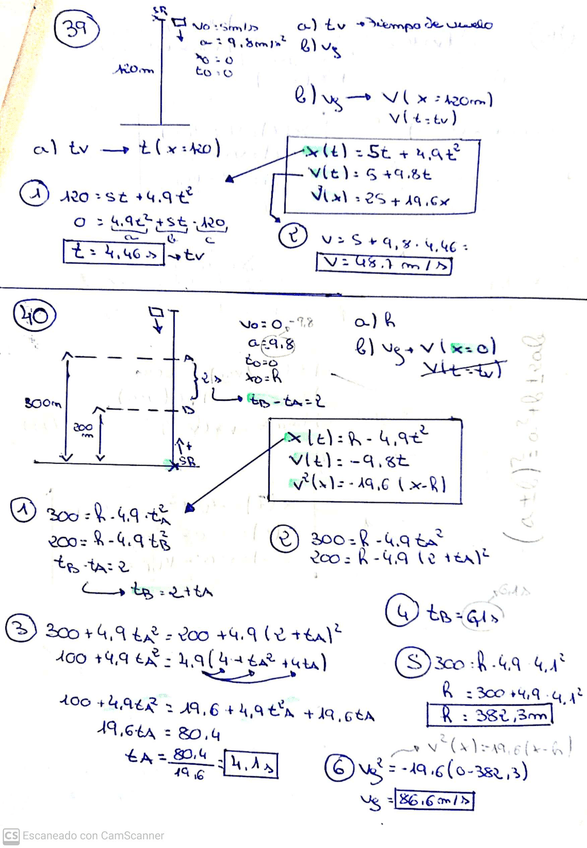 39
SR
v0=5m/s
a=9,8m/s²
x0=0
t0=0
120m
a) tv → tiempo de vuelo
b) vf
b) vf → v(x=120m)
v(t=tv)
a) tv → t(x=120)
x(t)=5t+4,9t²
v(t)=5+9,8t
v²(x)=25+19,6x
1 120=5t+4,9t²
0=4,9t²+5t-120
a b c
t=4,46s → tv
2 v=5+9,8·4,46=
v=48,7m/s
40
v0=0
-9.8
a=9,8
t0=0
x0=h
a) h
b) vf → v(x=0)
v(t=tv)
A
2s
tB-tA=2
300m
200
m
B
+
SR
x(t)=h-4,9t²
v(t)=-9,8t
v²(x)=-19,6(x-h)
1 300=h-4,9·tA²
200=h-4,9tB²
tB-tA=2
tB=2+tA
2 300=h-4,9tA²
200=h-4,9(2+tA)²
3 300+4,9tA²=200+4,9(2+tA)²
100+4,9tA²=4,9(4+tA²+4tA)
100+4,9tA²=19,6+4,9t²A+19,6tA
19,6tA=80,4
tA=80,4/19,6=4,1s
4 tB=6,1s
6,1s
5 300=h-4,9·4,1²
h=300+4,9·4,1²
h=382,3m
v²(x)=19,6(x-h)
6 vf²=-19,6(0-382,3)
vf=86,6m/s
CS Escaneado con CamScanner